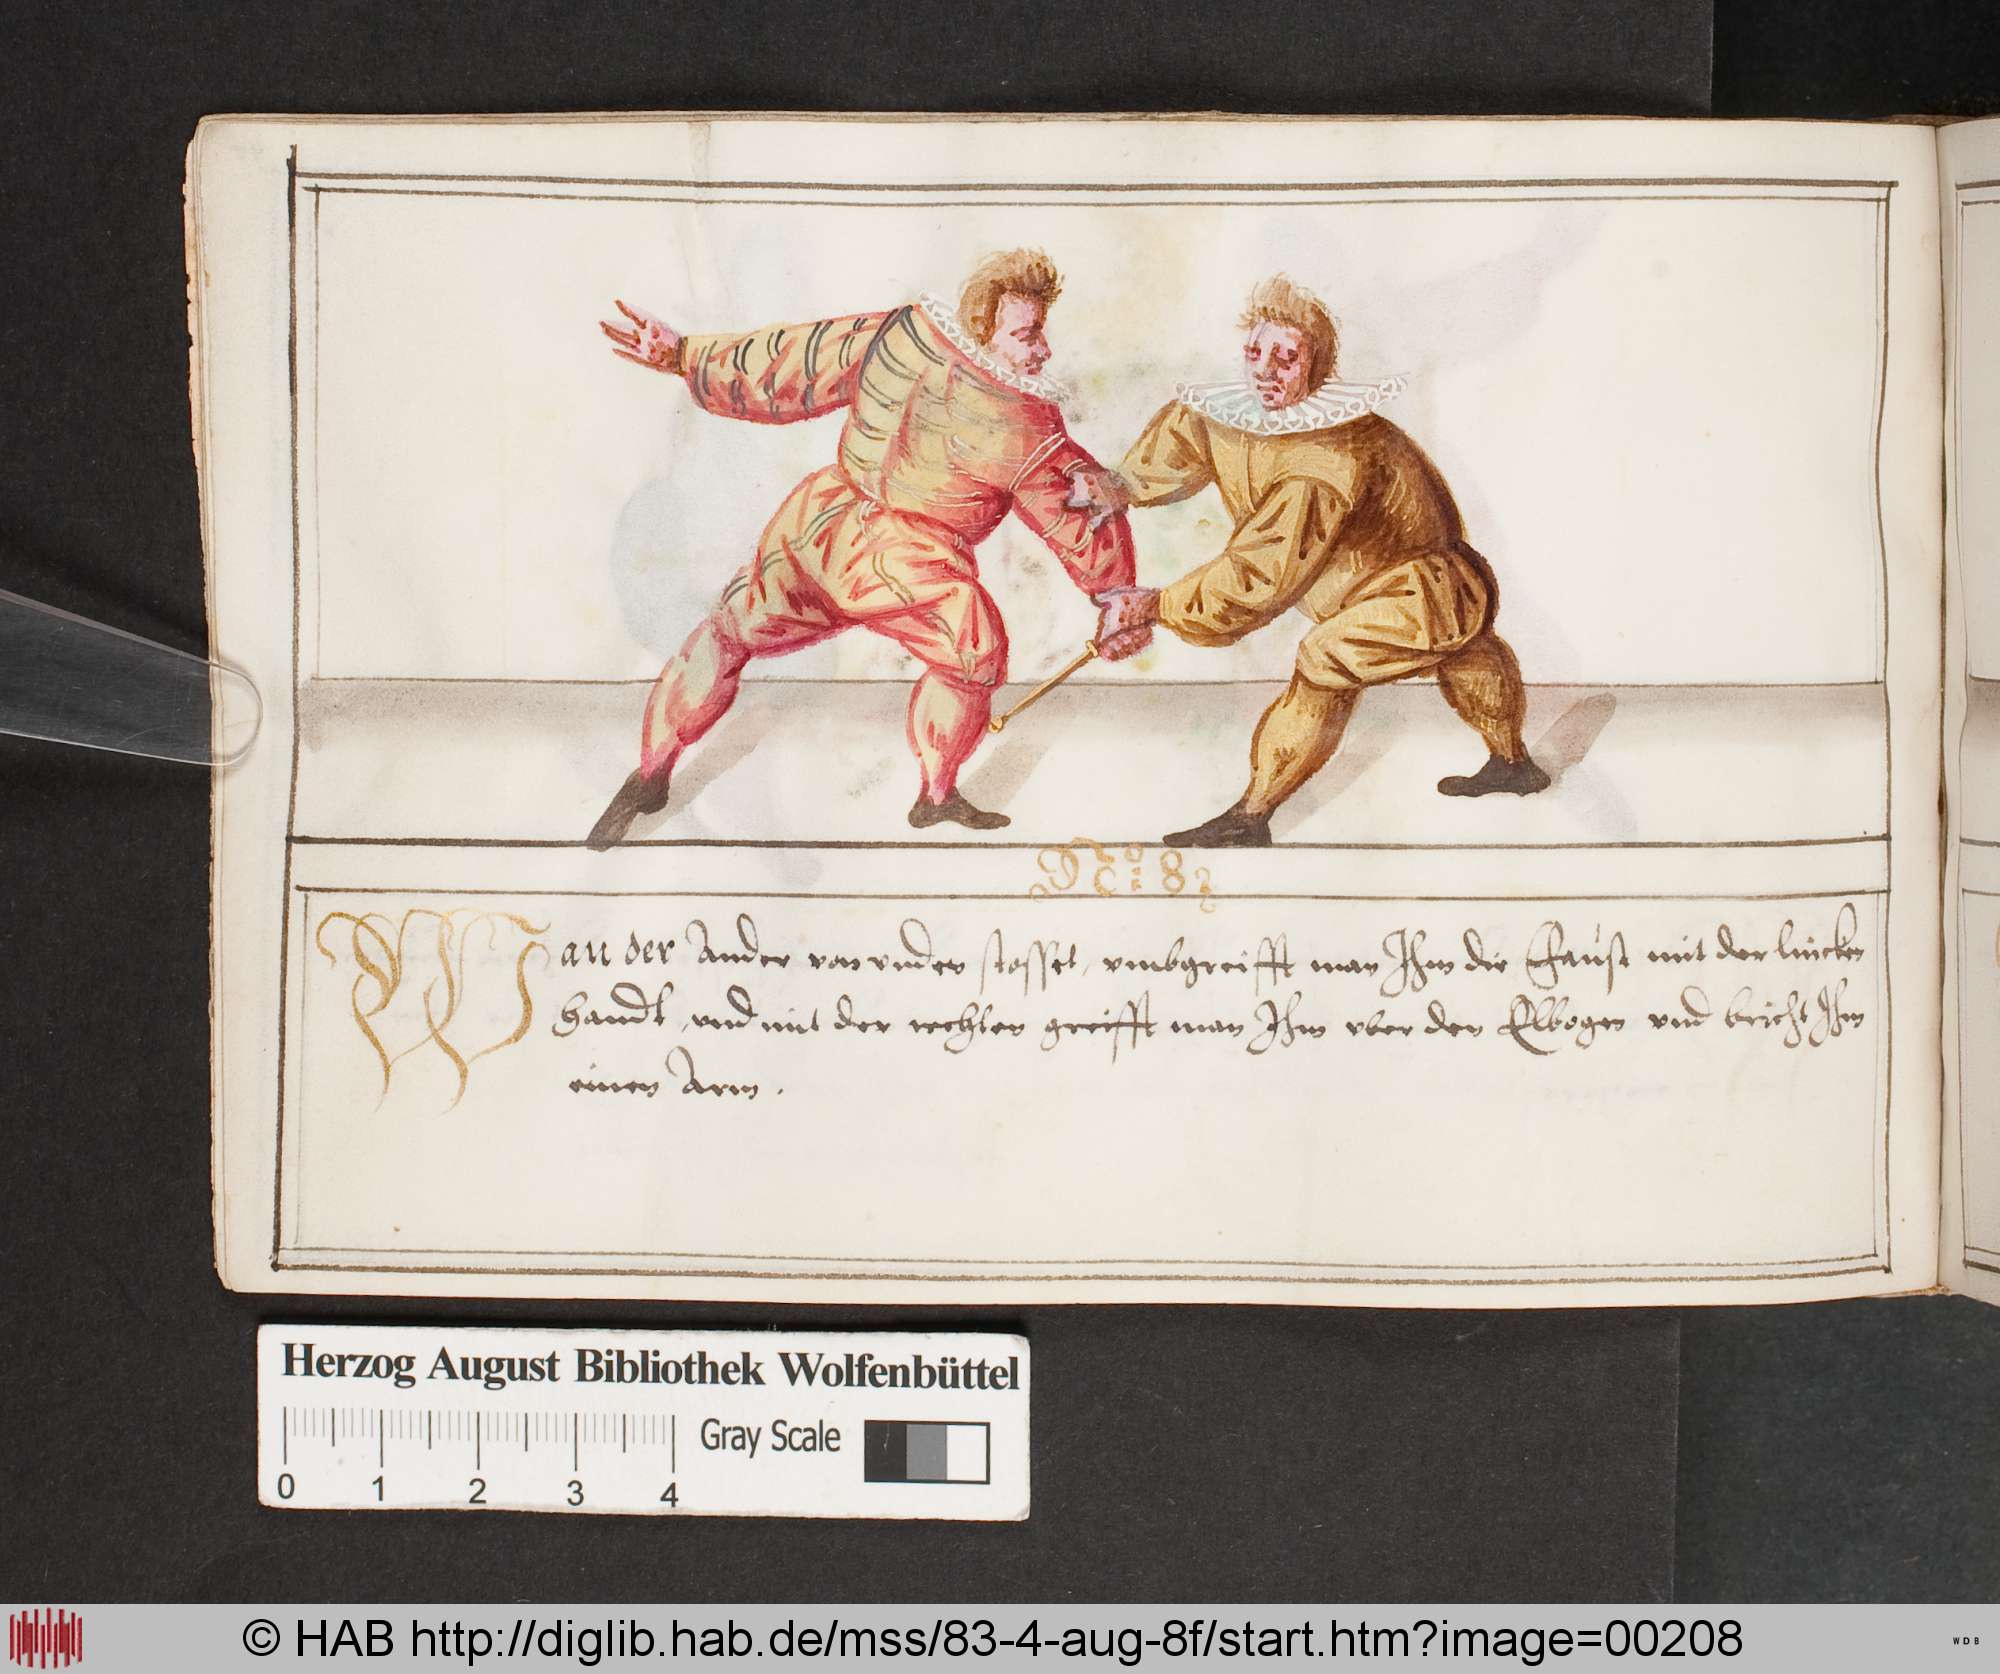 No: 82
Wan der Ander von vnden stosset, vmbgreifft man Ihm die Faust mit der lincken
handt, vnd mit der rechten greifft man Ihm vber den Elbogen vnd bricht Ihm
einen Arm.
Herzog August Bibliothek Wolfenbüttel
Gray Scale
0 1 2 3 4
© HAB http://diglib.hab.de/mss/83-4-aug-8f/start.htm?image=00208
WDB